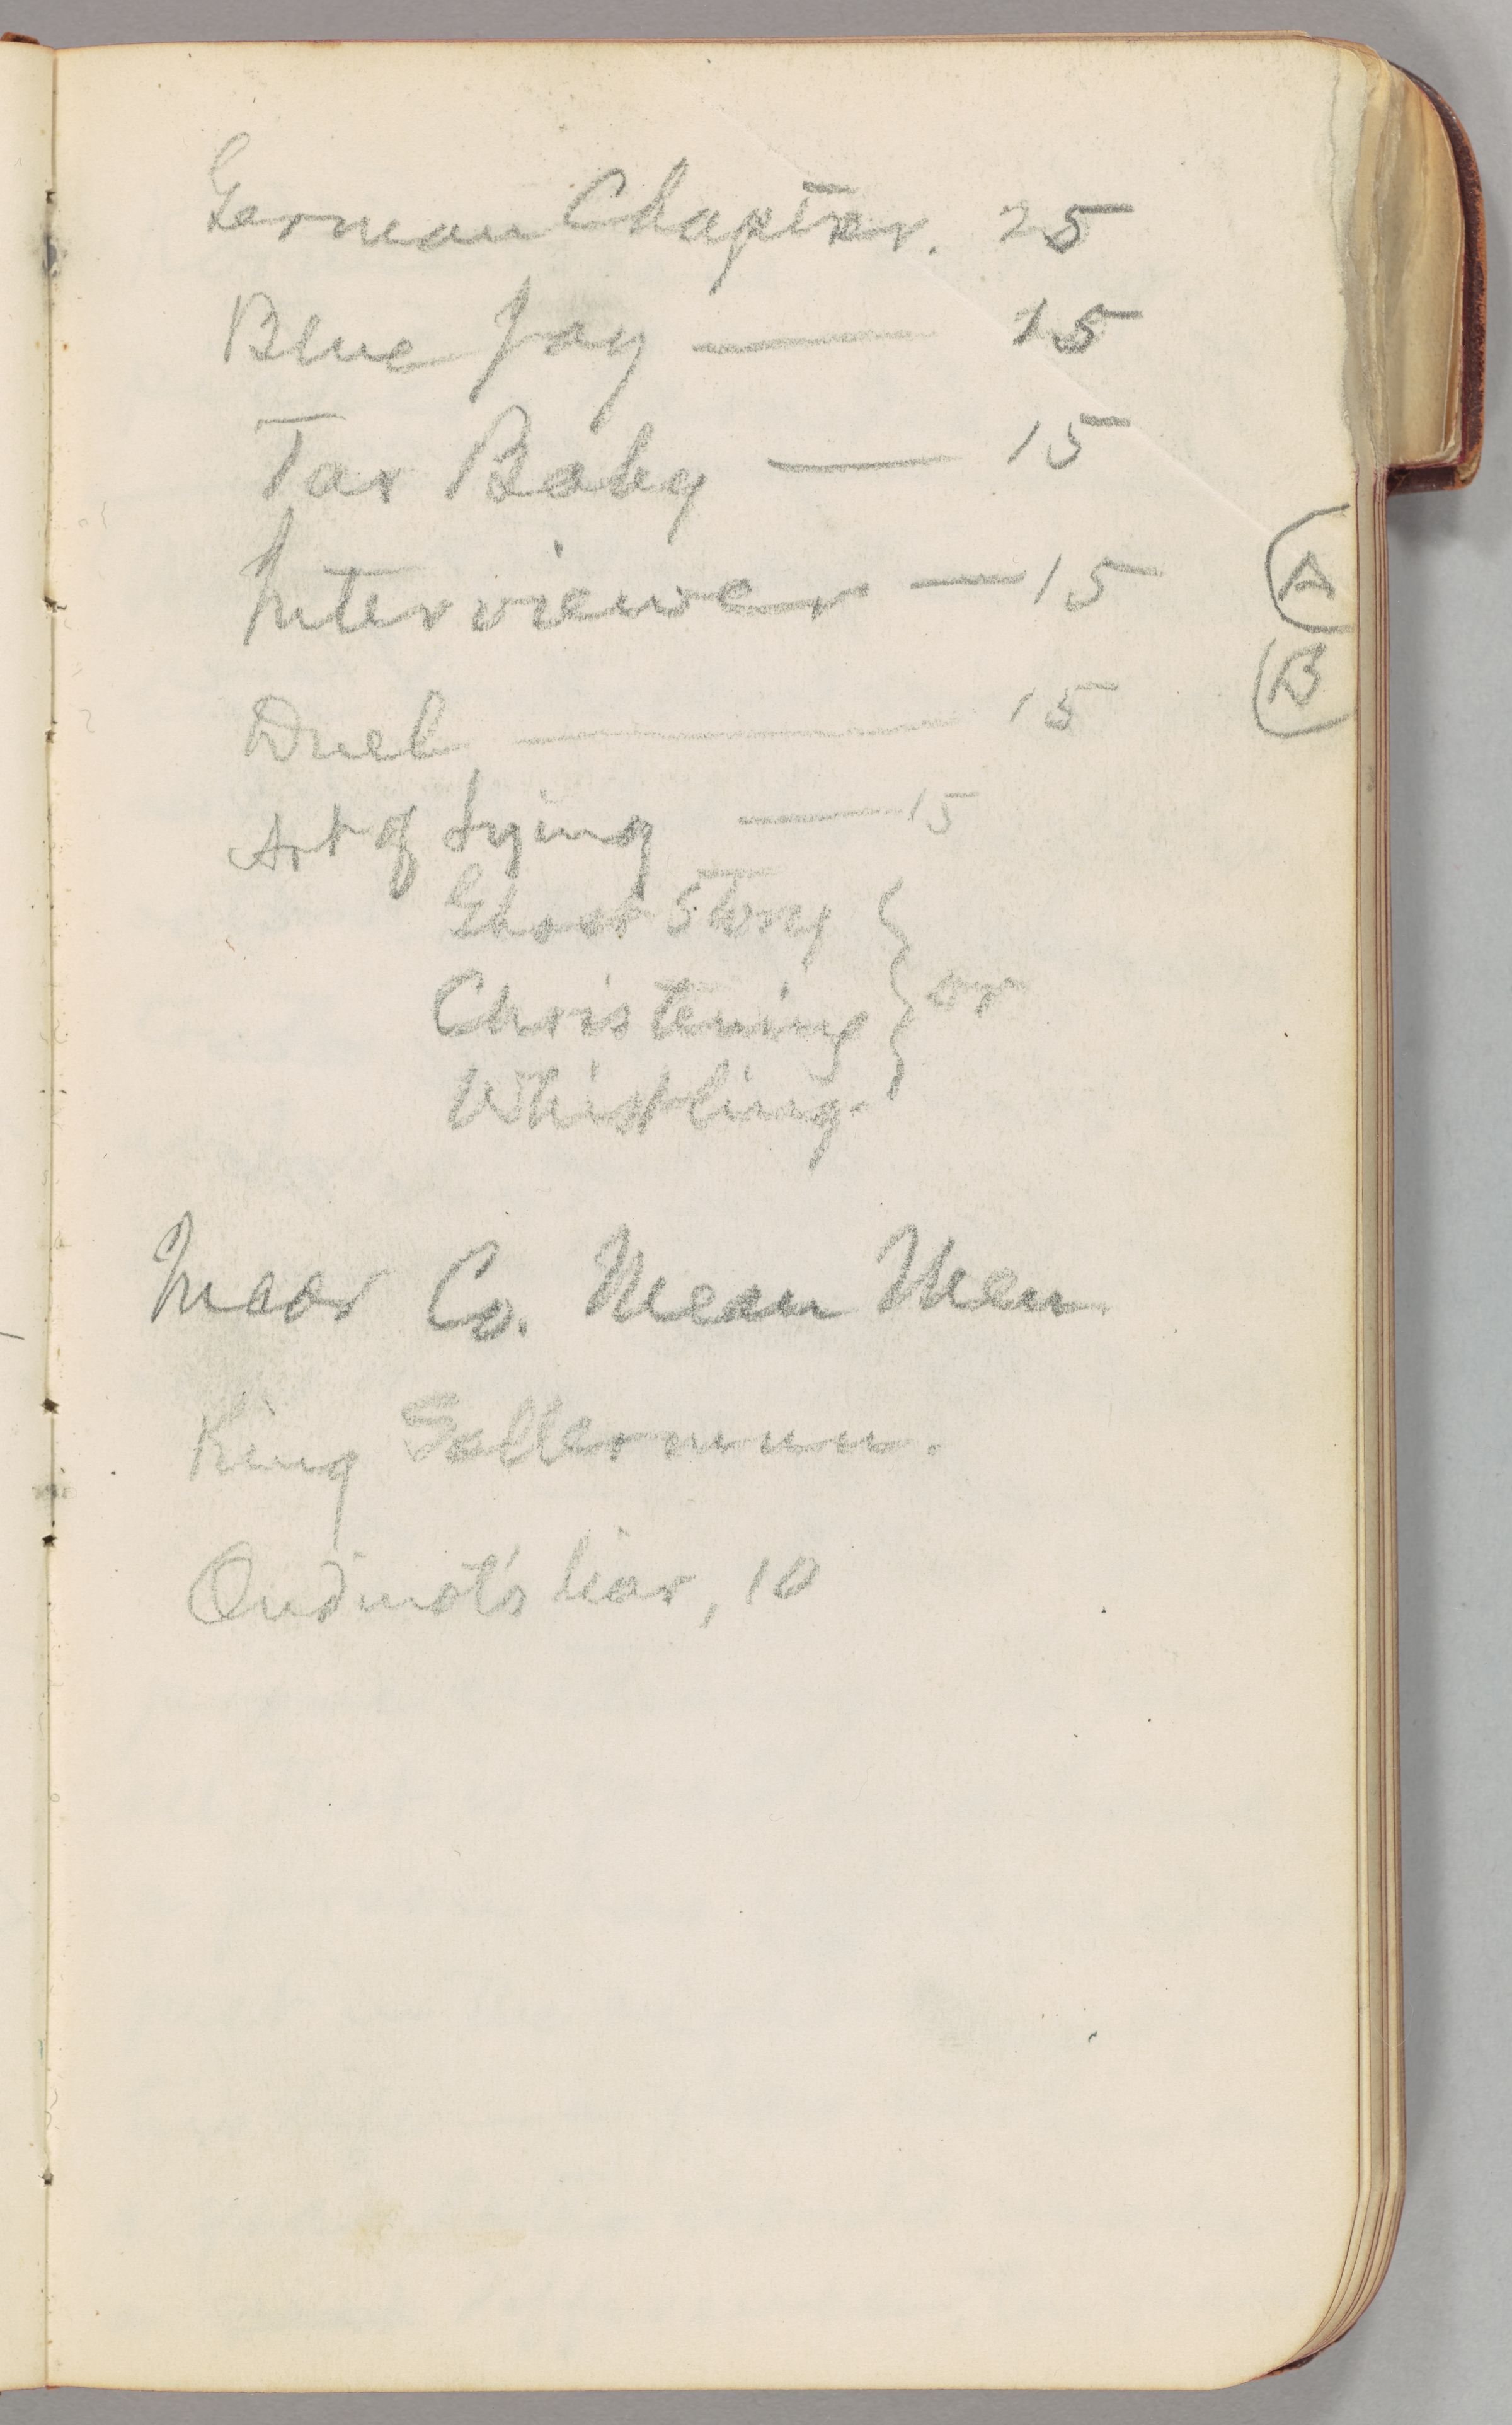 German Chapter. 25
Blue Jay — 15
Tar Baby — 15
Interviewer — 15
A
B
Duel — 15
Art of Lying — 15
Ghost Story
Christening } or
Whistling.
Co. Mean Men.
King Sollermun.
Liar, 10